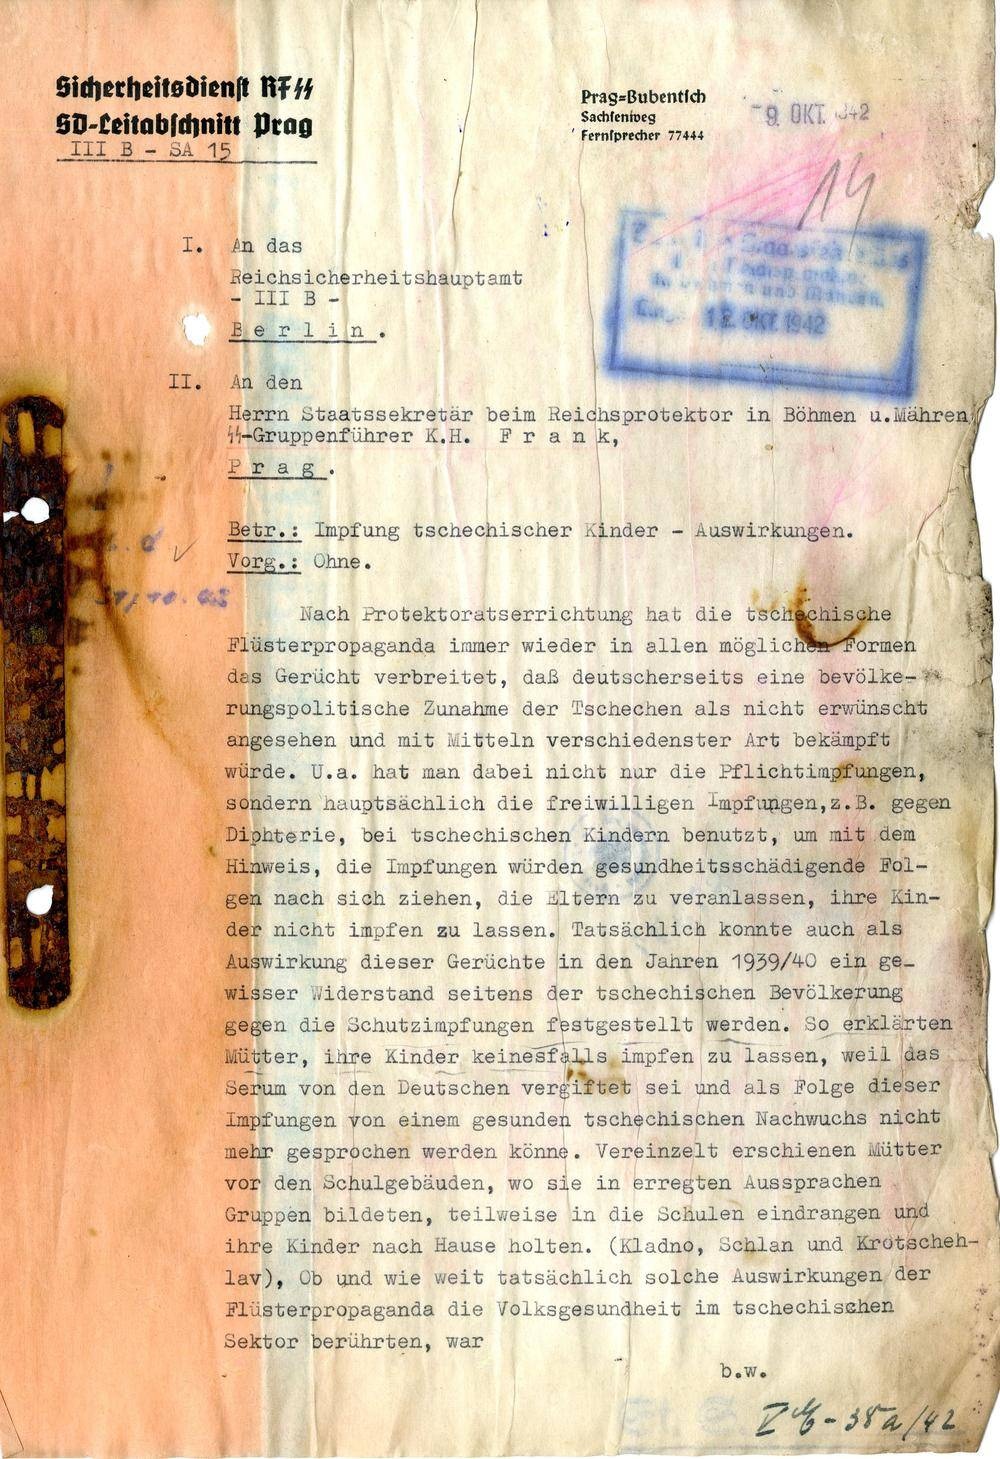 Sicherheitsdienst RFSS
SD-Leitabschnitt Prag
III B - SA 15
Prag-Bubentsch
Sachsenweg
Fernsprecher 77444
9. OKT. 1942
14
12. OKT. 1942
I. An das
Reichsicherheitshauptamt
- III B -
Berlin.
II. An den
Herrn Staatssekretär beim Reichsprotektor in Böhmen u.Mähren
SS-Gruppenführer K.H. Frank,
Prag.
Betr.: Impfung tschechischer Kinder - Auswirkungen.
Vorg.: Ohne.
Nach Protektoratserrichtung hat die tschechische
Flüsterpropaganda immer wieder in allen möglichen Formen
das Gerücht verbreitet, daß deutscherseits eine bevölke-
rungspolitische Zunahme der Tschechen als nicht erwünscht
angesehen und mit Mitteln verschiedenster Art bekämpft
würde. U.a. hat man dabei nicht nur die Pflichtimpfungen,
sondern hauptsächlich die freiwilligen Impfungen,z.B. gegen
Diphterie, bei tschechischen Kindern benutzt, um mit dem
Hinweis, die Impfungen würden gesundheitsschädigende Fol-
gen nach sich ziehen, die Eltern zu veranlassen, ihre Kin-
der nicht impfen zu lassen. Tatsächlich konnte auch als
Auswirkung dieser Gerüchte in den Jahren 1939/40 ein ge-
wisser Widerstand seitens der tschechischen Bevölkerung
gegen die Schutzimpfungen festgestellt werden. So erklärten
Mütter, ihre Kinder keinesfalls impfen zu lassen, weil das
Serum von den Deutschen vergiftet sei und als Folge dieser
Impfungen von einem gesunden tschechischen Nachwuchs nicht
mehr gesprochen werden könne. Vereinzelt erschienen Mütter
vor den Schulgebäuden, wo sie in erregten Aussprachen
Gruppen bildeten, teilweise in die Schulen eindrangen und
ihre Kinder nach Hause holten. (Kladno, Schlan und Krotscheh-
lav), Ob und wie weit tatsächlich solche Auswirkungen der
Flüsterpropaganda die Volksgesundheit im tschechischen
Sektor berührten, war
b.w.